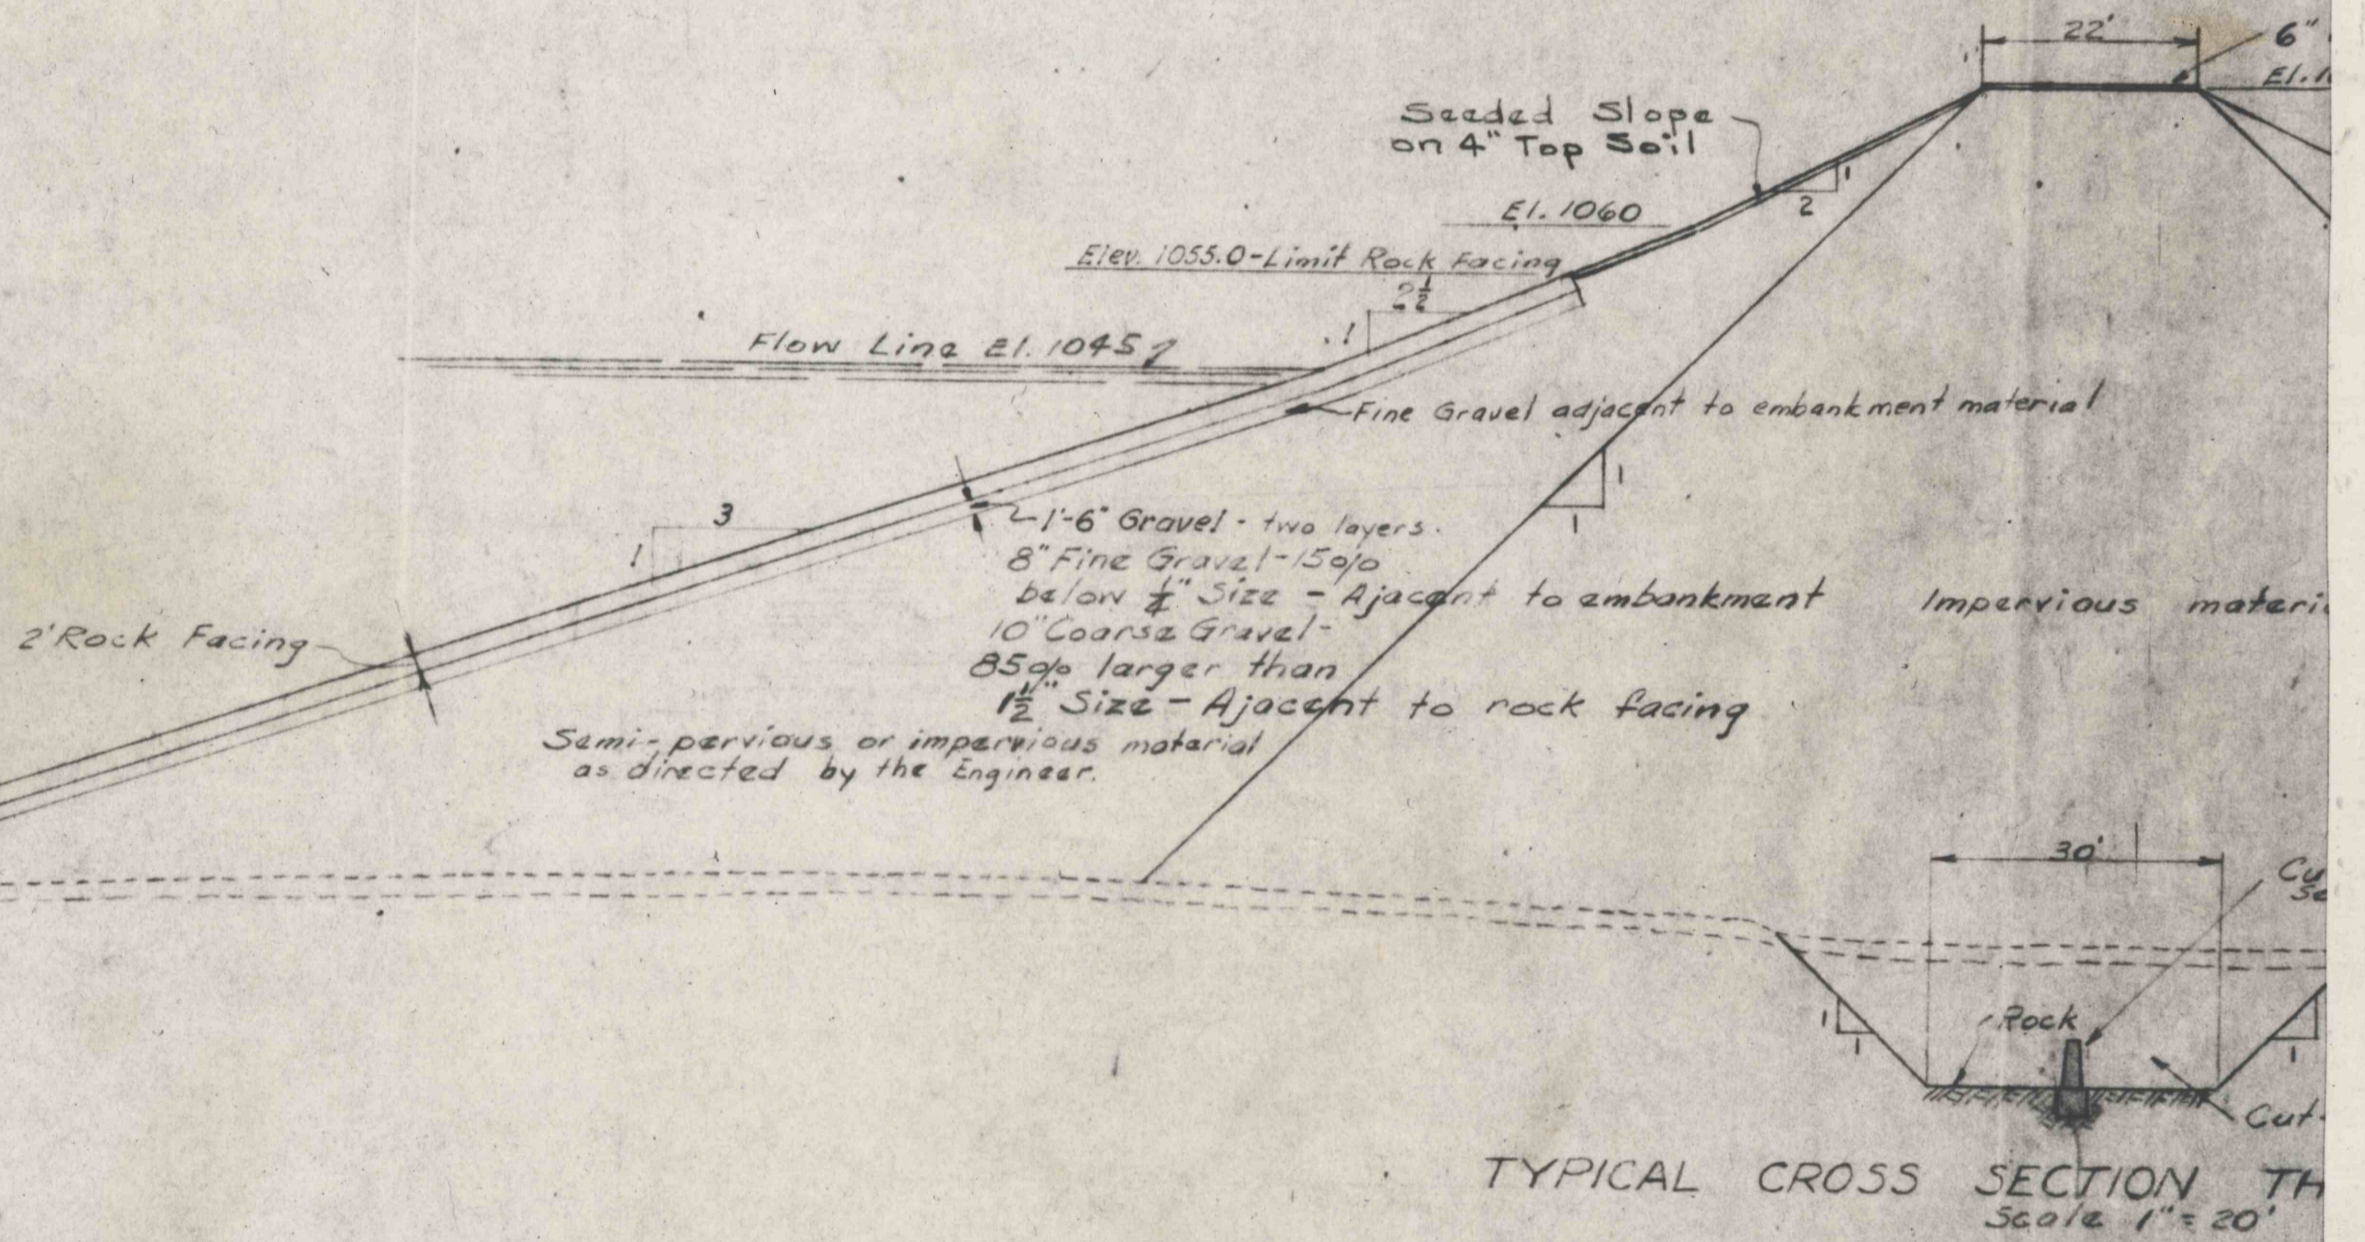 22'
6"
El. 1
Seeded Slope
on 4" Top Soil
1
2
El. 1060
Elev. 1055.0-Limit Rock Facing
2½
1
Flow Line El. 1045
Fine Gravel adjacent to embankment material
1
1
3
1
1'-6" Gravel - two layers.
8" Fine Gravel-15%
below ¼" Size - Ajacent to embankment
Impervious materi
10" Coarse Gravel-
85% larger than
1½" Size - Ajacent to rock facing
2' Rock Facing
Semi-pervious or impervious material
as directed by the Engineer.
30'
Cu
se
Rock
1
1
1
Cut-
TYPICAL CROSS SECTION TH
Scale 1" = 20'